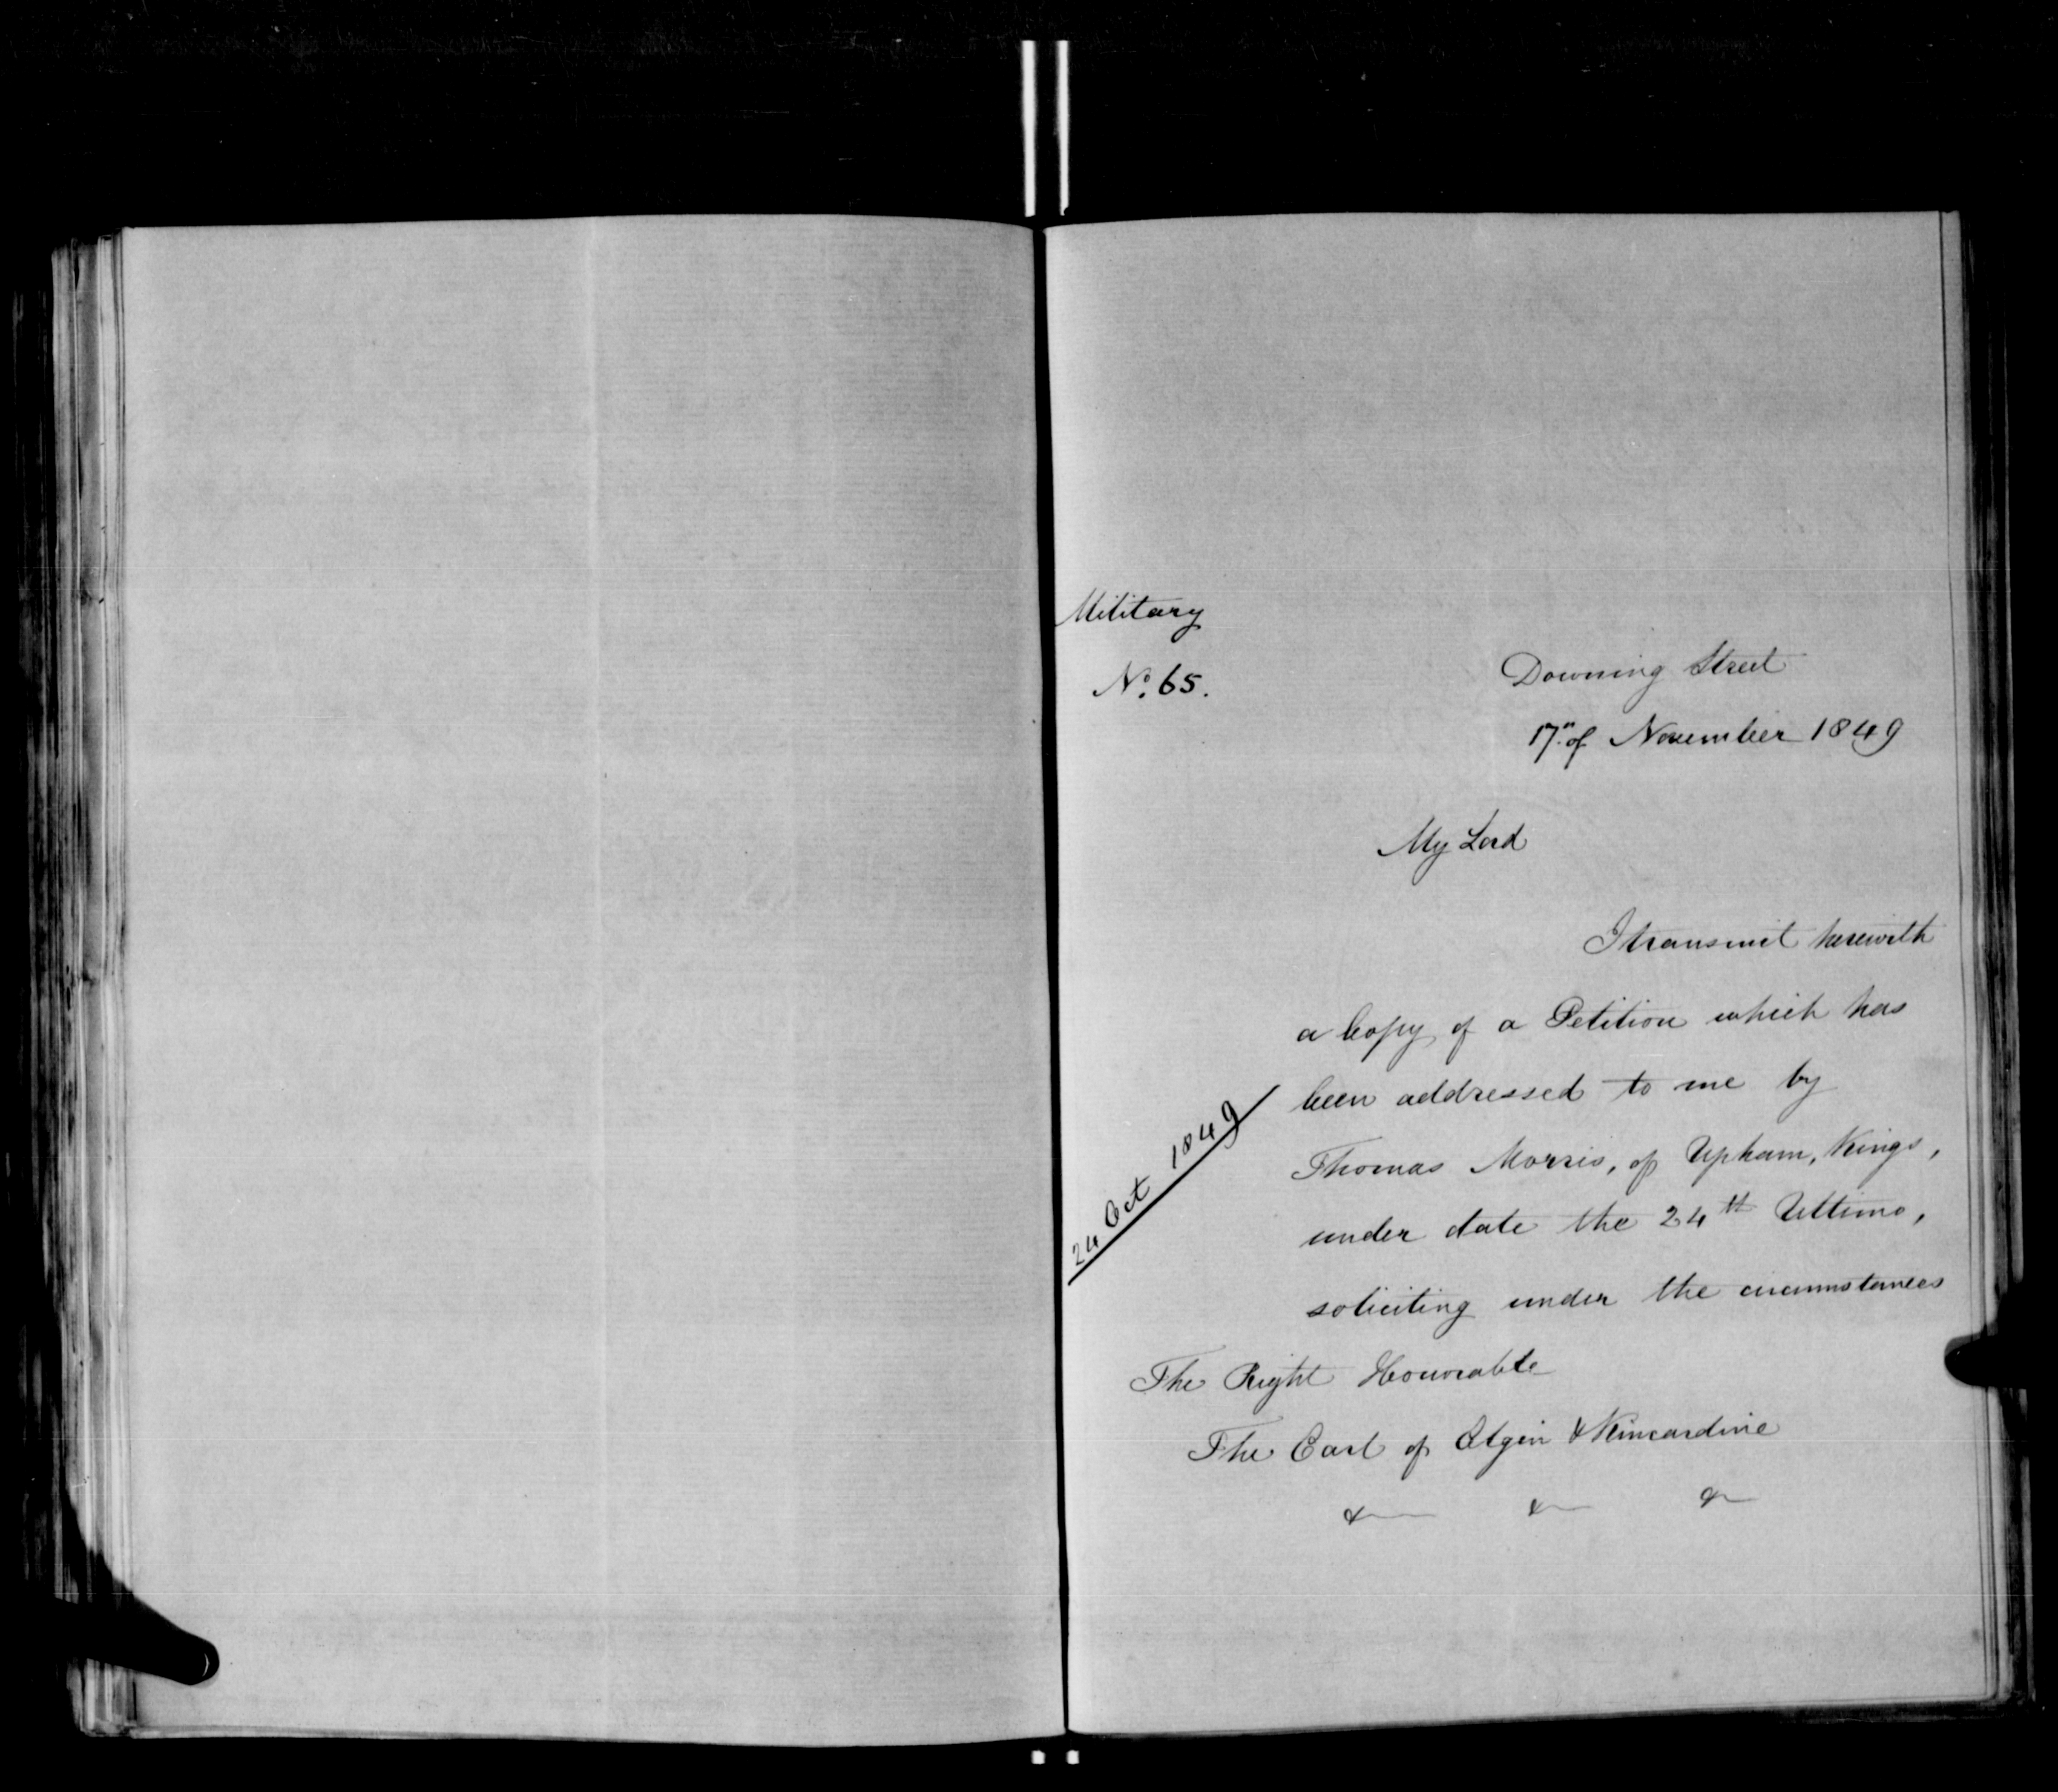 Military
No. 65.
Downing Street
17th of November 1849
My Lord
I transmit herewith
a Copy of a Petition which has
been addressed to me by
24 Oct 1849
Thomas Morris, of Upham, Kings,
under date the 24th Ultimo,
soliciting under the circumstances
The Right Honorable
The Earl of Elgin & Kincardine
& & &